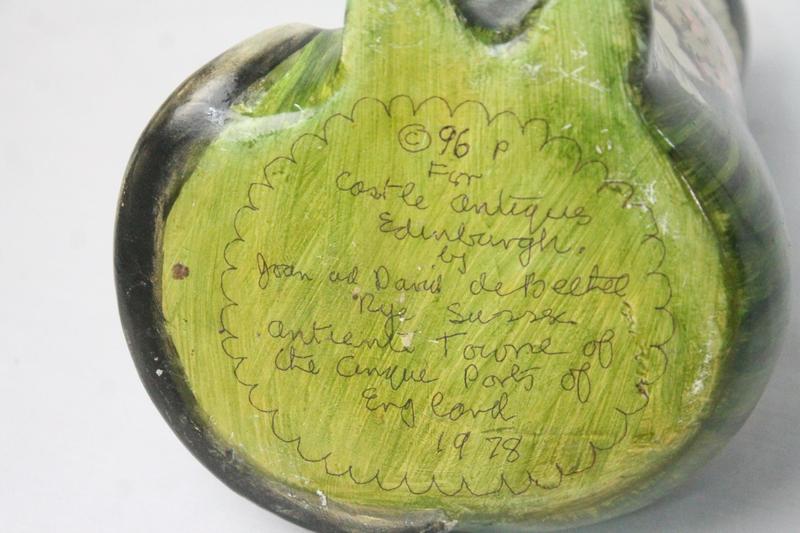 © 96 P
For
Castle Antiques
Edinburgh.
by
Joan ad David de Bethel
Rye Sussex
Antient Towne of
the Cinque Ports of
England
1978